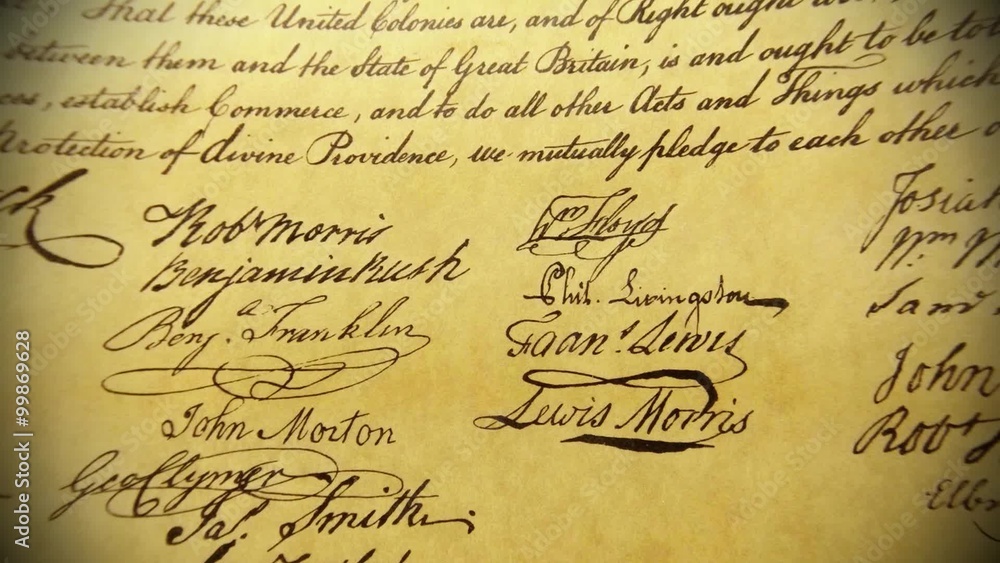 That these United Colonies are, and of Right ought
between them and the State of Great Britain, is and ought to be tot
ces, establish Commerce, and to do all other Acts and Things which
Protection of divine Providence, we mutually pledge to each other o
ck
Robt Morris
Benjamin Rush
Benja. Franklin
John Morton
Geo Clymer
Jas. Smith
Wm. Floyd
Phil. Livingston
Frans. Lewis
Lewis Morris
Josiah
Wm
Saml
John
Robt
Elbr
Adobe Stock | #99869628